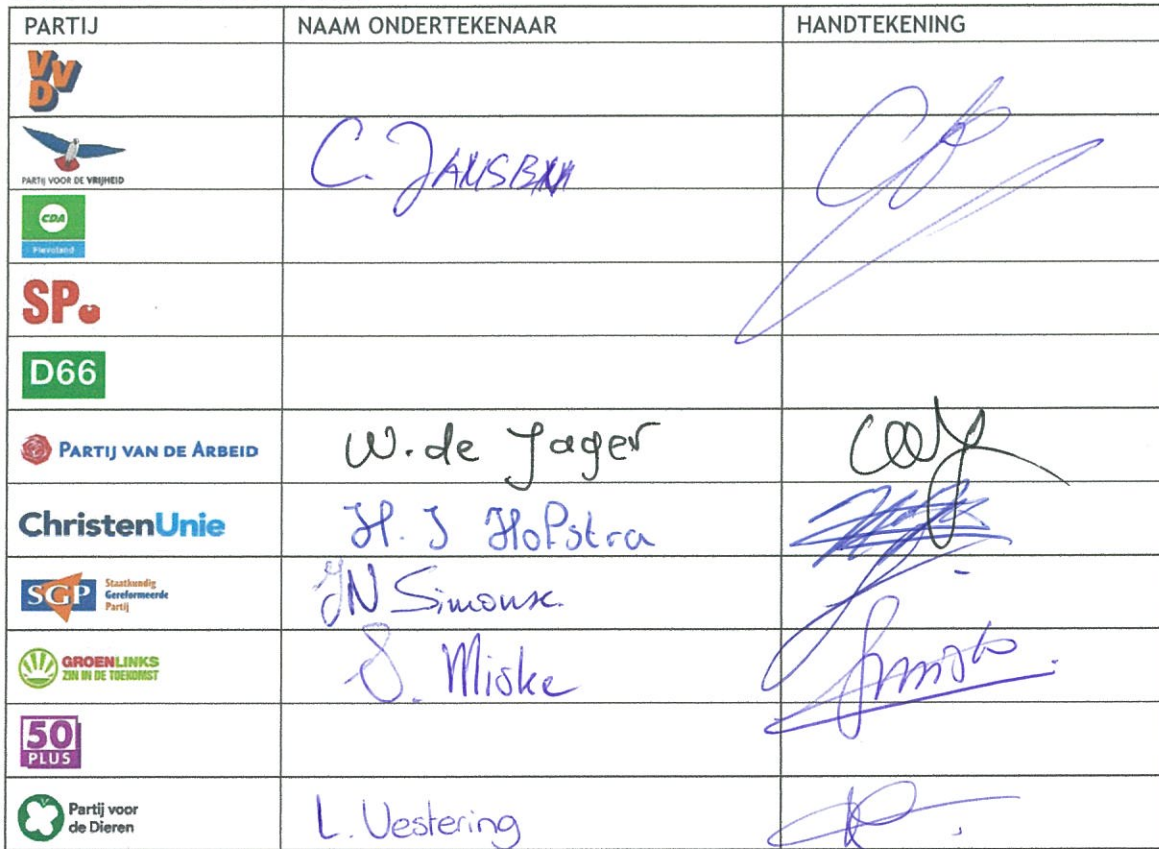 PARTIJ NAAM ONDERTEKENAAR HANDTEKENING
VVD
PARTIJ VOOR DE VRIJHEID C. JANSEN
CDA
Flevoland
SP
D66
PARTIJ VAN DE ARBEID W. de Jager
ChristenUnie H. J Hofstra
SGP Staatkundig Gereformeerde Partij JN Simonse
GROENLINKS S. Miske
ZIN IN DE TOEKOMST
50
PLUS
Partij voor
de Dieren L. Vestering